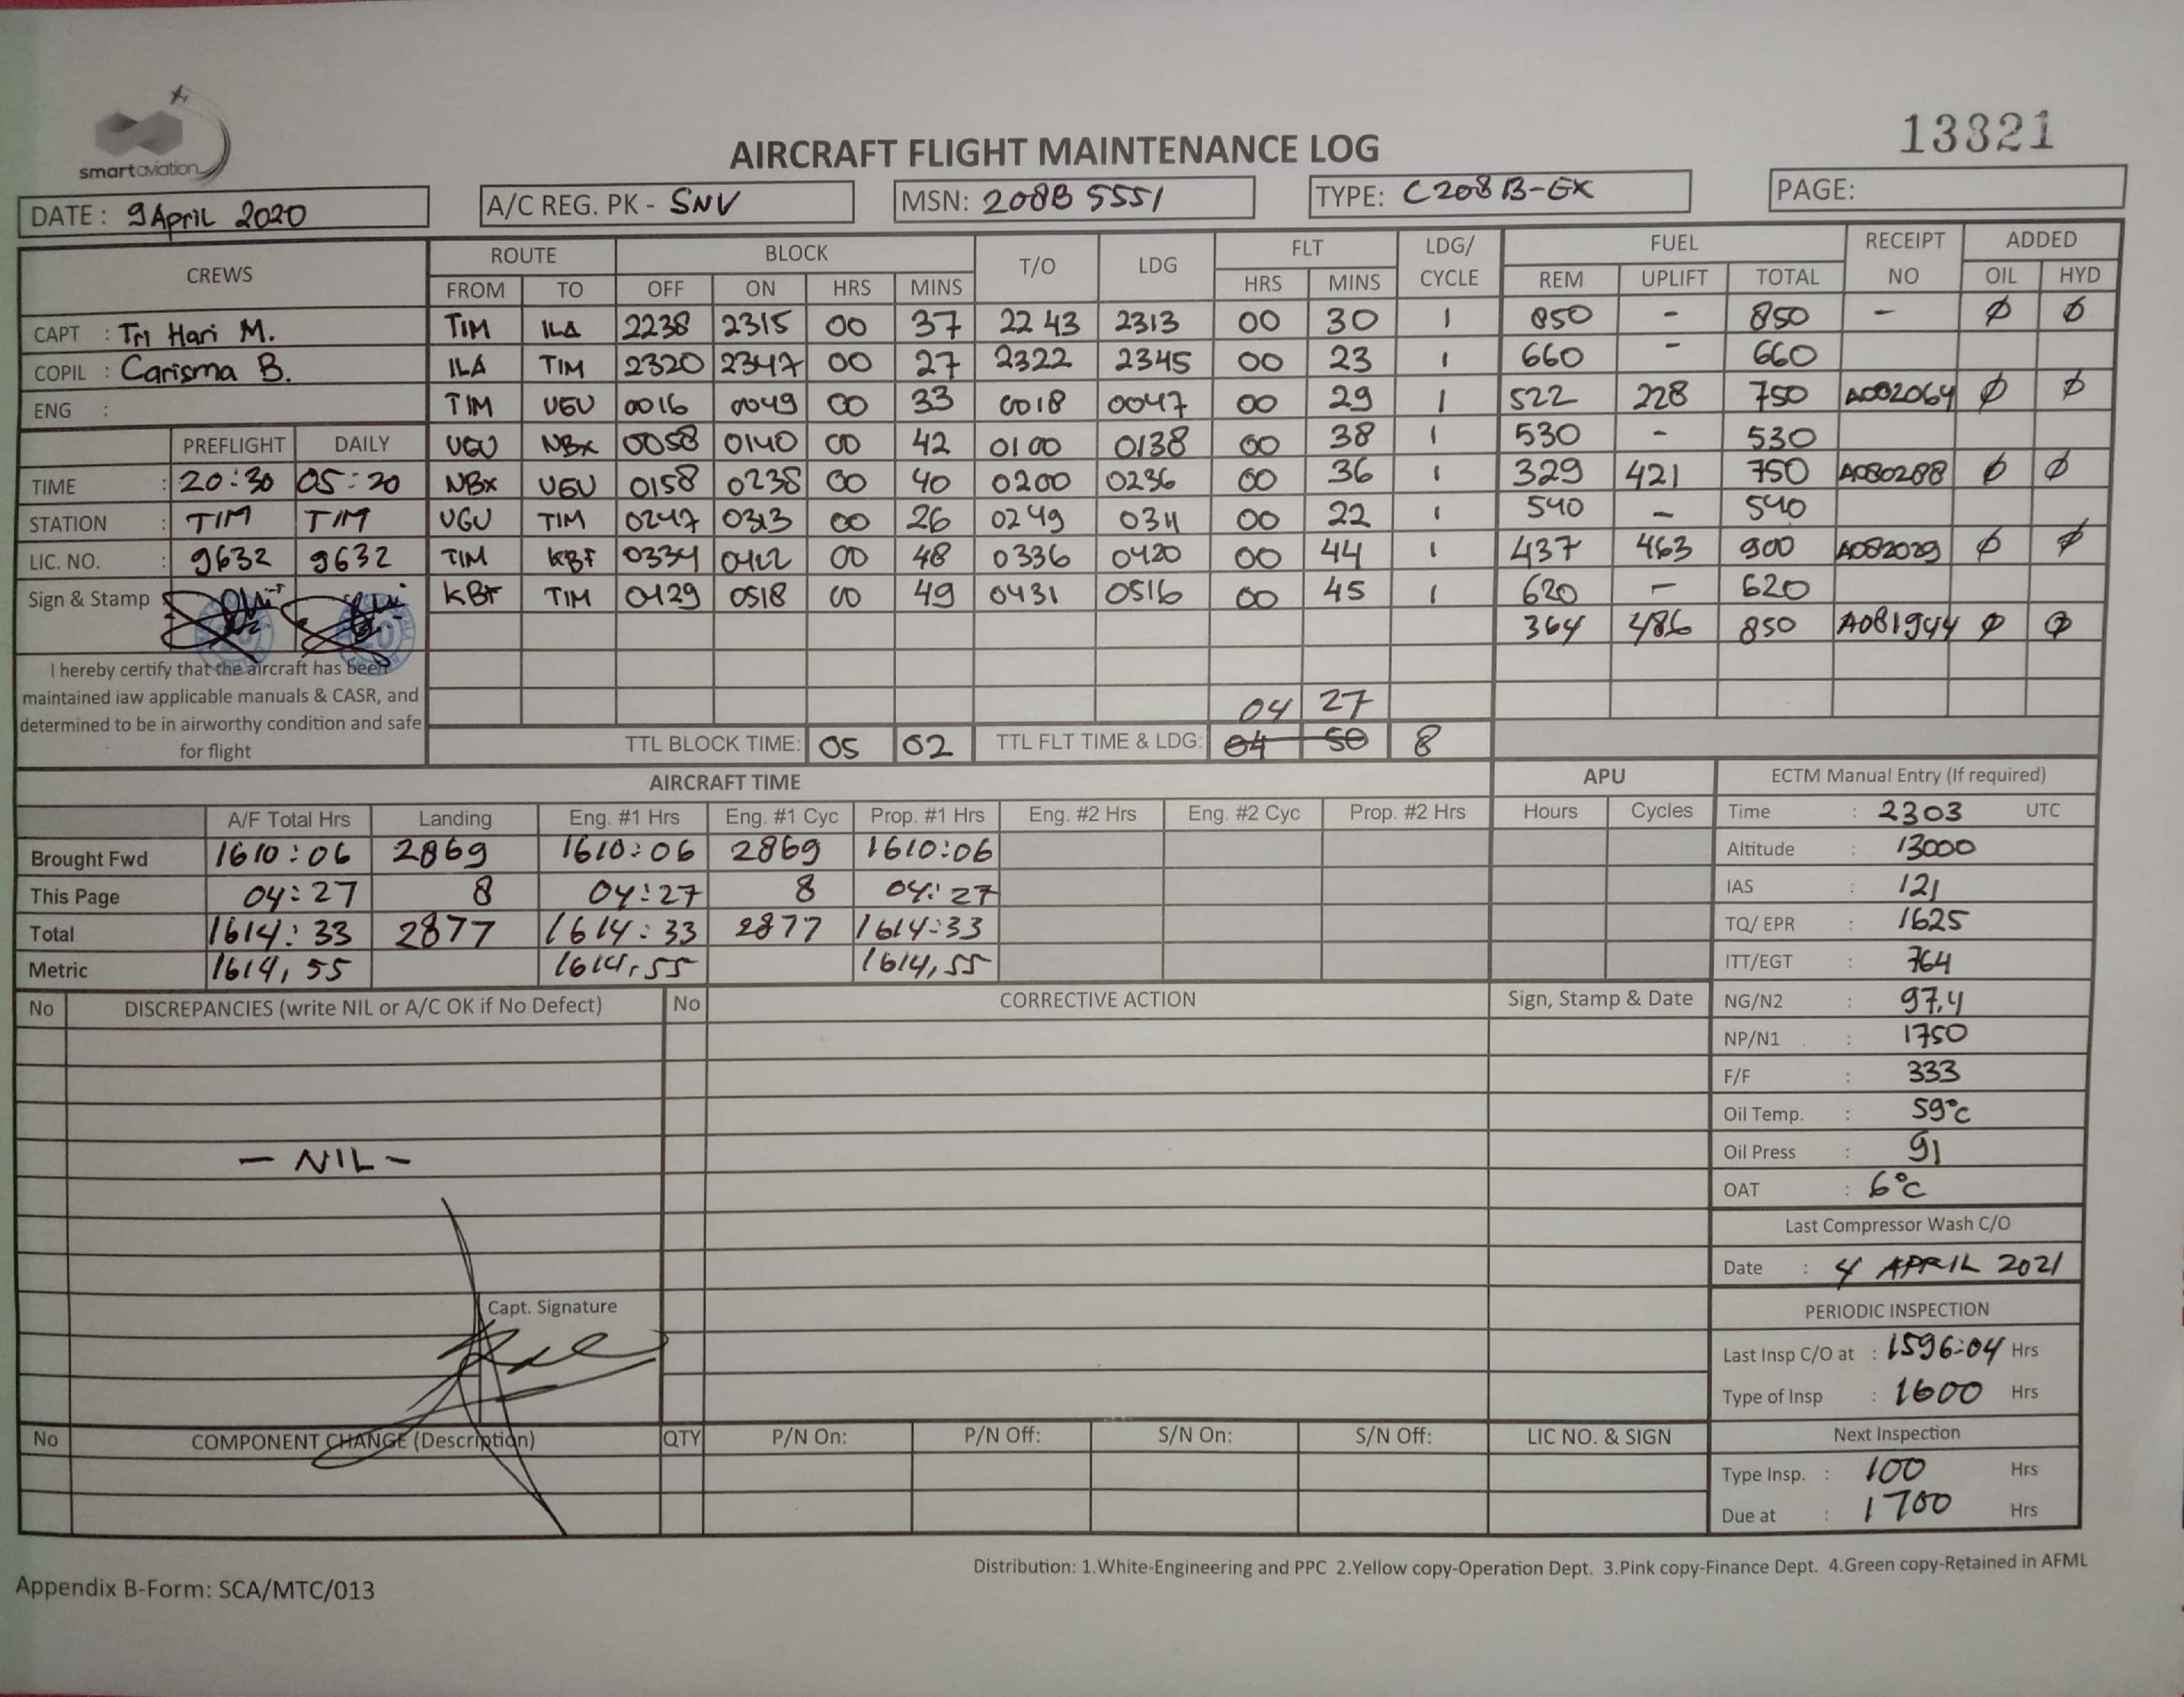 smartaviation
13821
AIRCRAFT FLIGHT MAINTENANCE LOG
DATE : 9 April 2020 A/C REG. PK - SNV MSN: 208B 5551 TYPE: C208B-EX PAGE:
CREWS ROUTE BLOCK T/O LDG FLT LDG/ CYCLE FUEL RECEIPT NO ADDED
FROM TO OFF ON HRS MINS HRS MINS REM UPLIFT TOTAL OIL HYD
CAPT : Tri Hari M. TIM ILA 2238 2315 00 37 2243 2313 00 30 1 850 - 850 - Ø Ø
COPIL : Carisma B. ILA TIM 2320 2347 00 27 2322 2345 00 23 1 660 - 660
ENG : TIM UGU 0016 0049 00 33 0018 0047 00 29 1 522 228 750 A082064 Ø Ø
PREFLIGHT DAILY UGU NBX 0058 0140 00 42 0100 0138 00 38 1 530 - 530
TIME : 20:30 05:20 NBX UGU 0158 0238 00 40 0200 0236 00 36 1 329 421 750 A080288 Ø Ø
STATION : TIM TIM UGU TIM 0247 0313 00 26 0249 0311 00 22 1 540 - 540
LIC. NO. : 9632 9632 TIM KBF 0334 0422 00 48 0336 0420 00 44 1 437 463 900 A082029 Ø Ø
Sign & Stamp KBF TIM 0429 0518 00 49 0431 0516 00 45 1 620 - 620
364 486 850 A081944 Ø Ø
I hereby certify that the aircraft has been
maintained iaw applicable manuals & CASR, and
determined to be in airworthy condition and safe
for flight
04 27
TTL BLOCK TIME: 05 02 TTL FLT TIME & LDG: 04 50 8
AIRCRAFT TIME APU ECTM Manual Entry (If required)
A/F Total Hrs Landing Eng. #1 Hrs Eng. #1 Cyc Prop. #1 Hrs Eng. #2 Hrs Eng. #2 Cyc Prop. #2 Hrs Hours Cycles Time : 2303 UTC
Brought Fwd 1610:06 2869 1610:06 2869 1610:06 Altitude : 13000
This Page 04:27 8 04:27 8 04:27 IAS : 121
Total 1614:33 2877 1614:33 2877 1614:33 TQ/ EPR : 1625
Metric 1614,55 1614,55 1614,55 ITT/EGT : 764
No DISCREPANCIES (write NIL or A/C OK if No Defect) No CORRECTIVE ACTION Sign, Stamp & Date NG/N2 : 97,4
NP/N1 : 1750
F/F : 333
Oil Temp. : 59°c
- NIL - Oil Press : 91
OAT : 6°c
Last Compressor Wash C/O
Date : 4 APRIL 2021
Capt. Signature PERIODIC INSPECTION
Last Insp C/O at : 1596:04 Hrs
Type of Insp : 1600 Hrs
No COMPONENT CHANGE (Description) QTY P/N On: P/N Off: S/N On: S/N Off: LIC NO. & SIGN Next Inspection
Type Insp. : 100 Hrs
Due at : 1700 Hrs
Distribution: 1.White-Engineering and PPC 2.Yellow copy-Operation Dept. 3.Pink copy-Finance Dept. 4.Green copy-Retained in AFML
Appendix B-Form: SCA/MTC/013